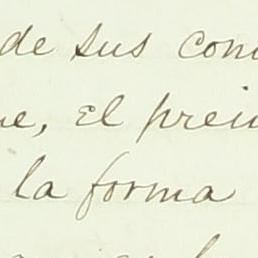 de sus con
ue, el prein
la forma